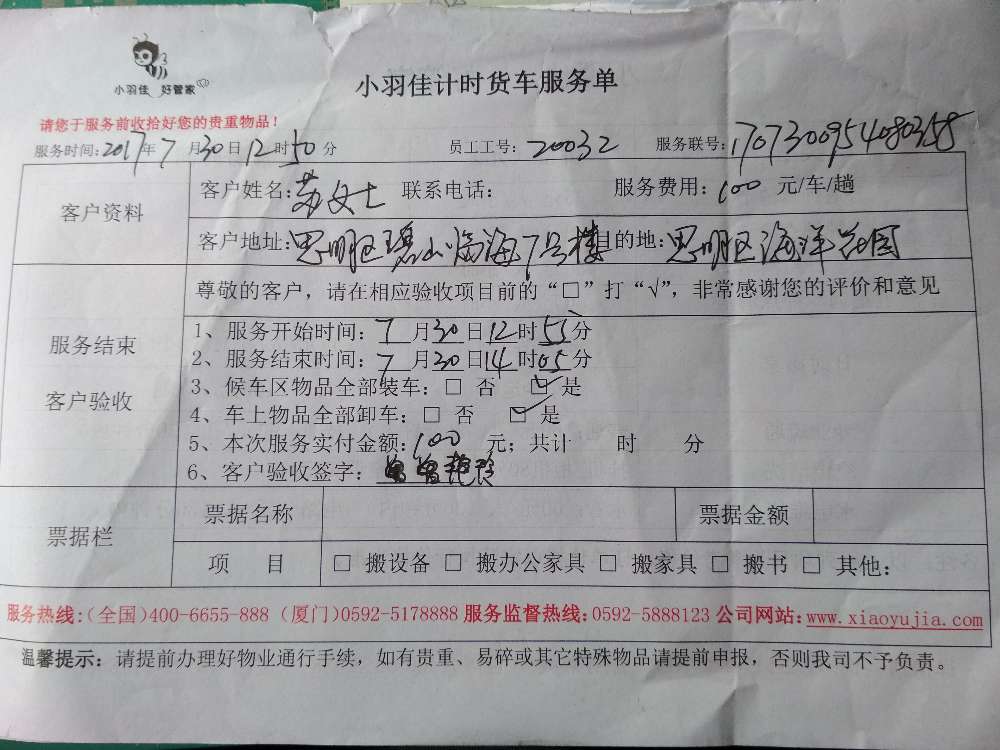 小羽佳 好管家
小羽佳计时货车服务单
请您于服务前收拾好您的贵重物品！
服务时间：2017年7月30日12时50分 员工工号：20032 服务联号：1707300954080358
客户资料
客户姓名：苏女士 联系电话： 服务费用：100 元/车/趟
客户地址：思明区碧山临海7号楼 目的地：思明区海洋花园
尊敬的客户，请在相应验收项目前的“□”打“√”，非常感谢您的评价和意见
服务结束
客户验收
1、服务开始时间：7月30日12时55分
2、服务结束时间：7月30日14时05分
3、候车区物品全部装车：□ 否 ☑ 是
4、车上物品全部卸车：□ 否 ☑ 是
5、本次服务实付金额：100 元；共计 时 分
6、客户验收签字：
票据栏
票据名称 票据金额
项 目 □ 搬设备 □ 搬办公家具 □ 搬家具 □ 搬书 □ 其他：
服务热线：（全国）400-6655-888（厦门）0592-5178888 服务监督热线：0592-5888123 公司网站：www.xiaoyujia.com
温馨提示：请提前办理好物业通行手续，如有贵重、易碎或其它特殊物品请提前申报，否则我司不予负责。